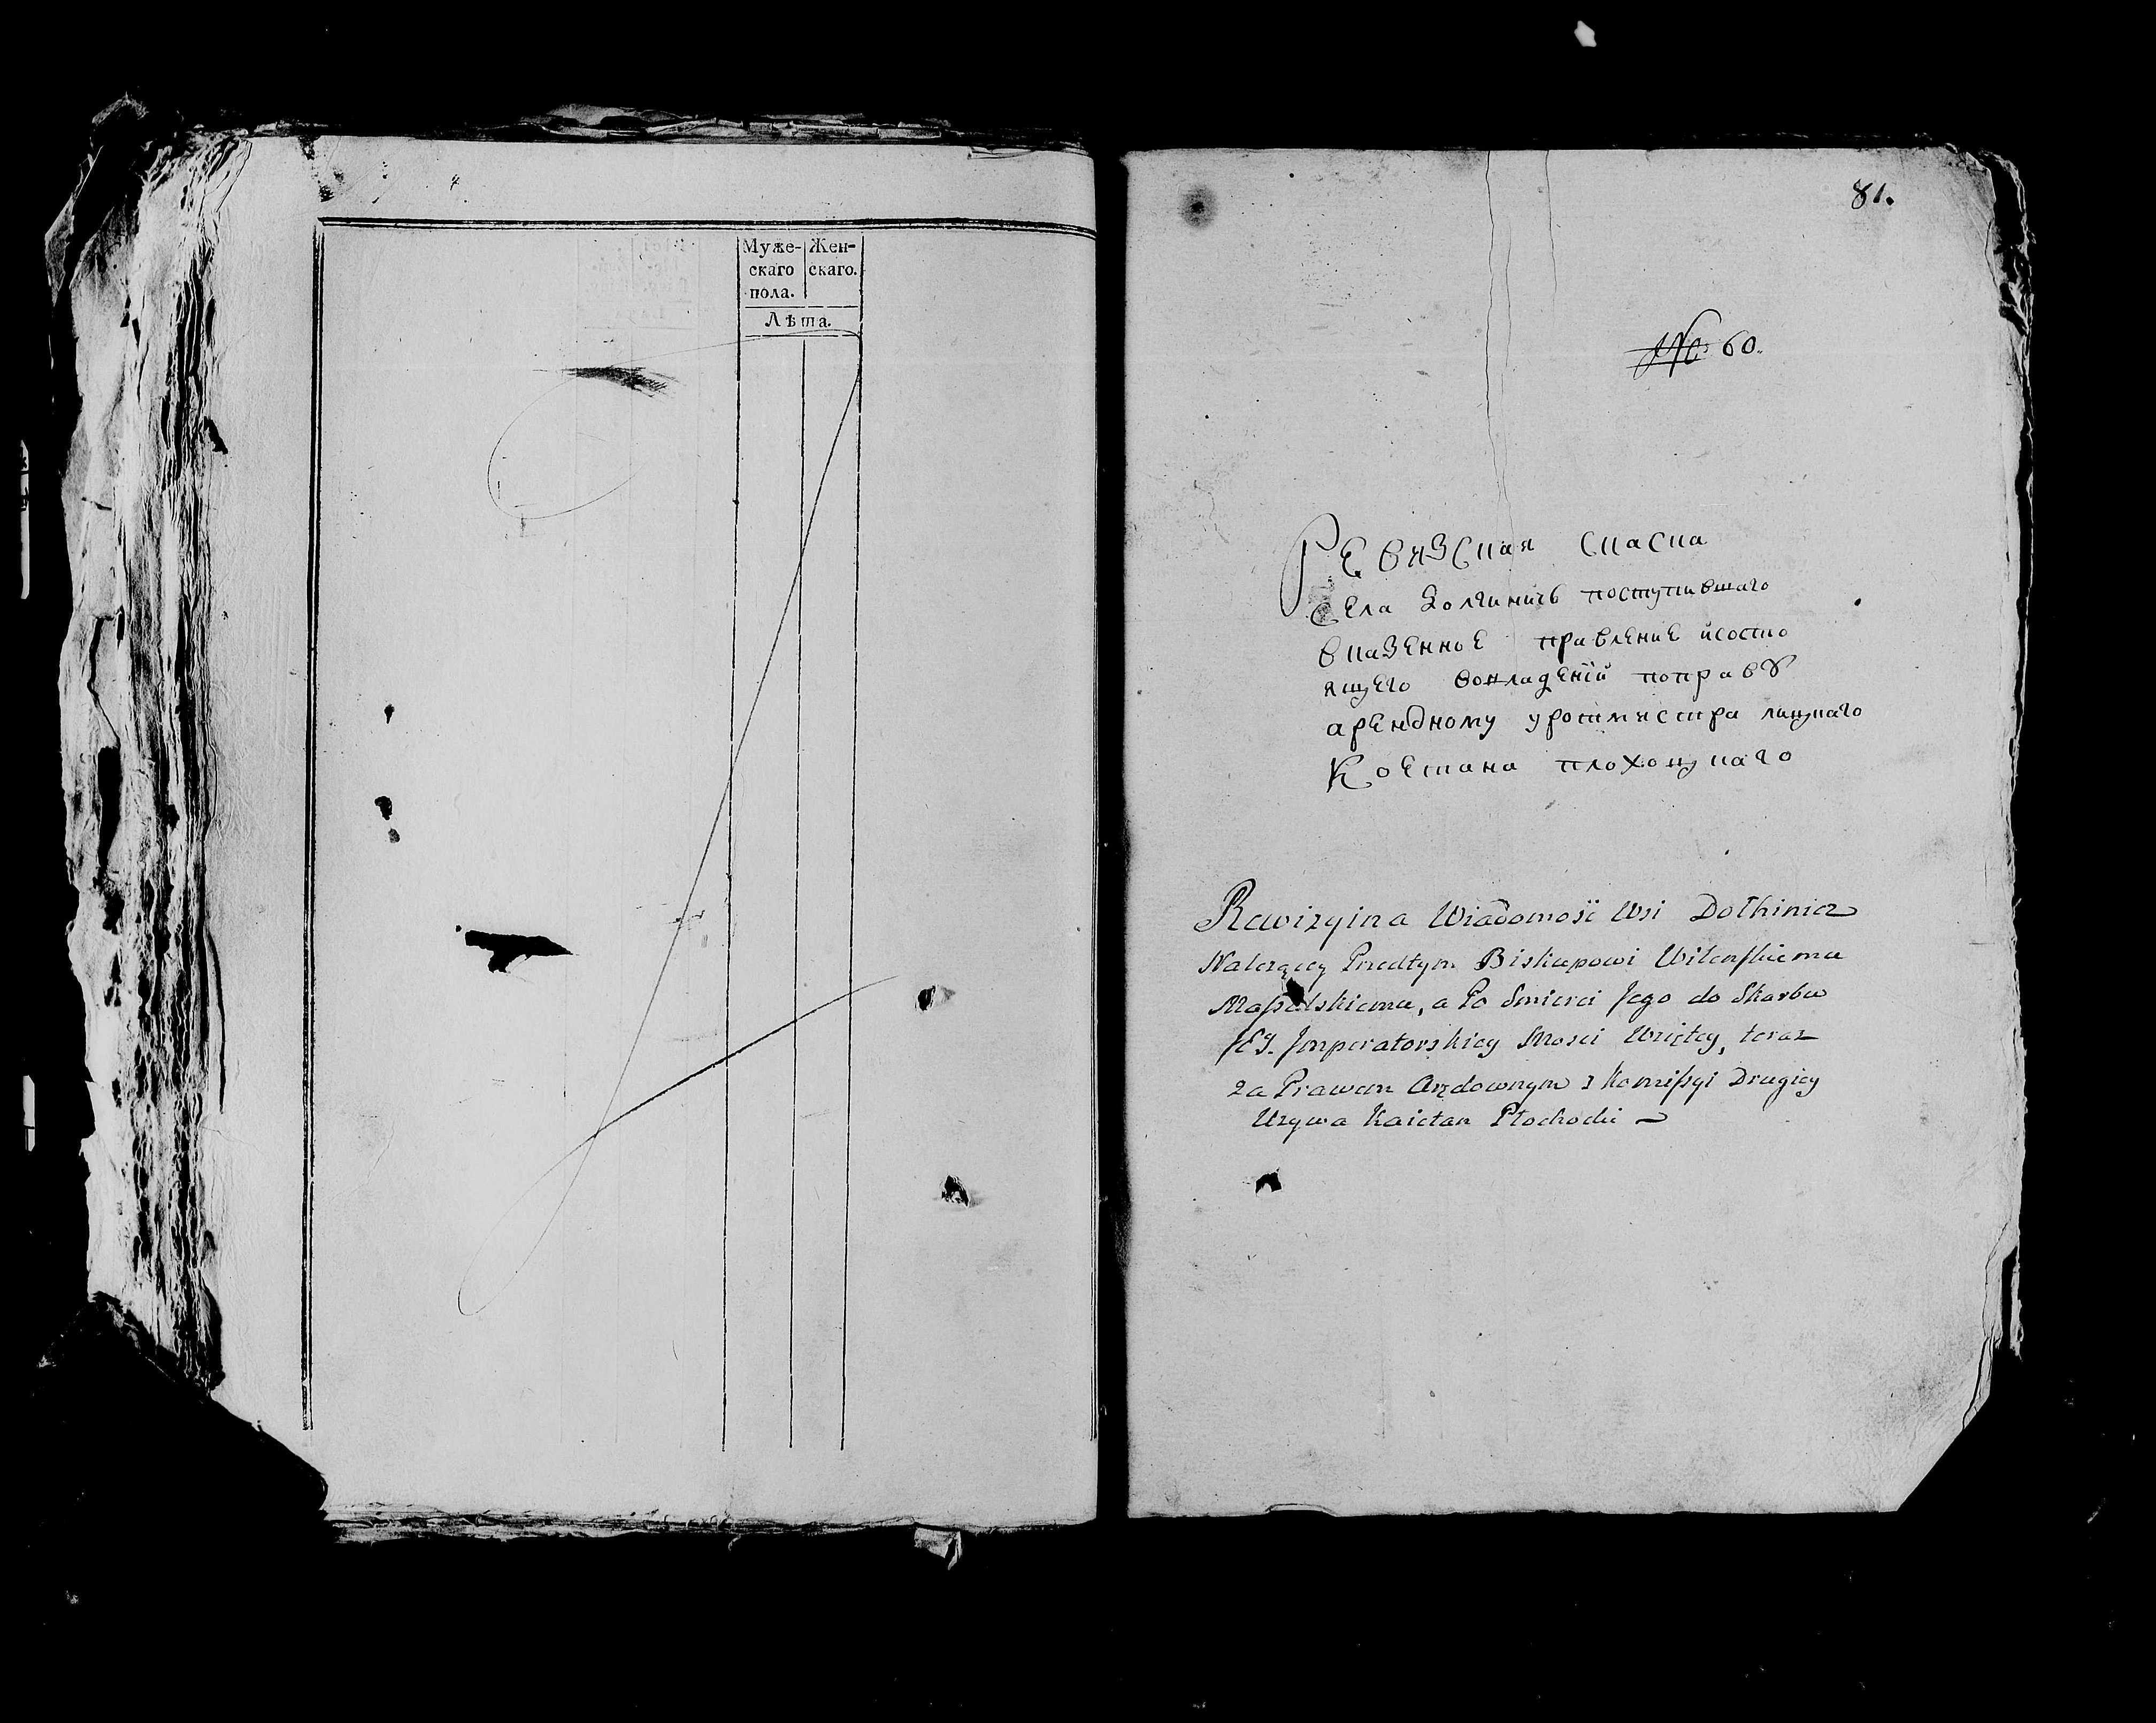 Муже- Жен-
скаго скаго.
пола.
Лѣта.
81.
№ 60.
Ревизская скаска
села Долгинич поступившаго
вказенное правление исостоо
ящего вовладений поправу
арендному уротмистра пинскаго
Коетана плохоцкаго
Rewizyina Wiadomość Wsi Dołhinicz
Nalezącey Przedtym Biskupowi Wilenskiemu
Massalskiemu, a Po Smierci Jego do Skarbu
JEJ. Jmperatorskiey Mosci Wziętey, teraz
za Prawem Arędownym z Komissyi Drugiey
Uzywa Kaietan Płochocki